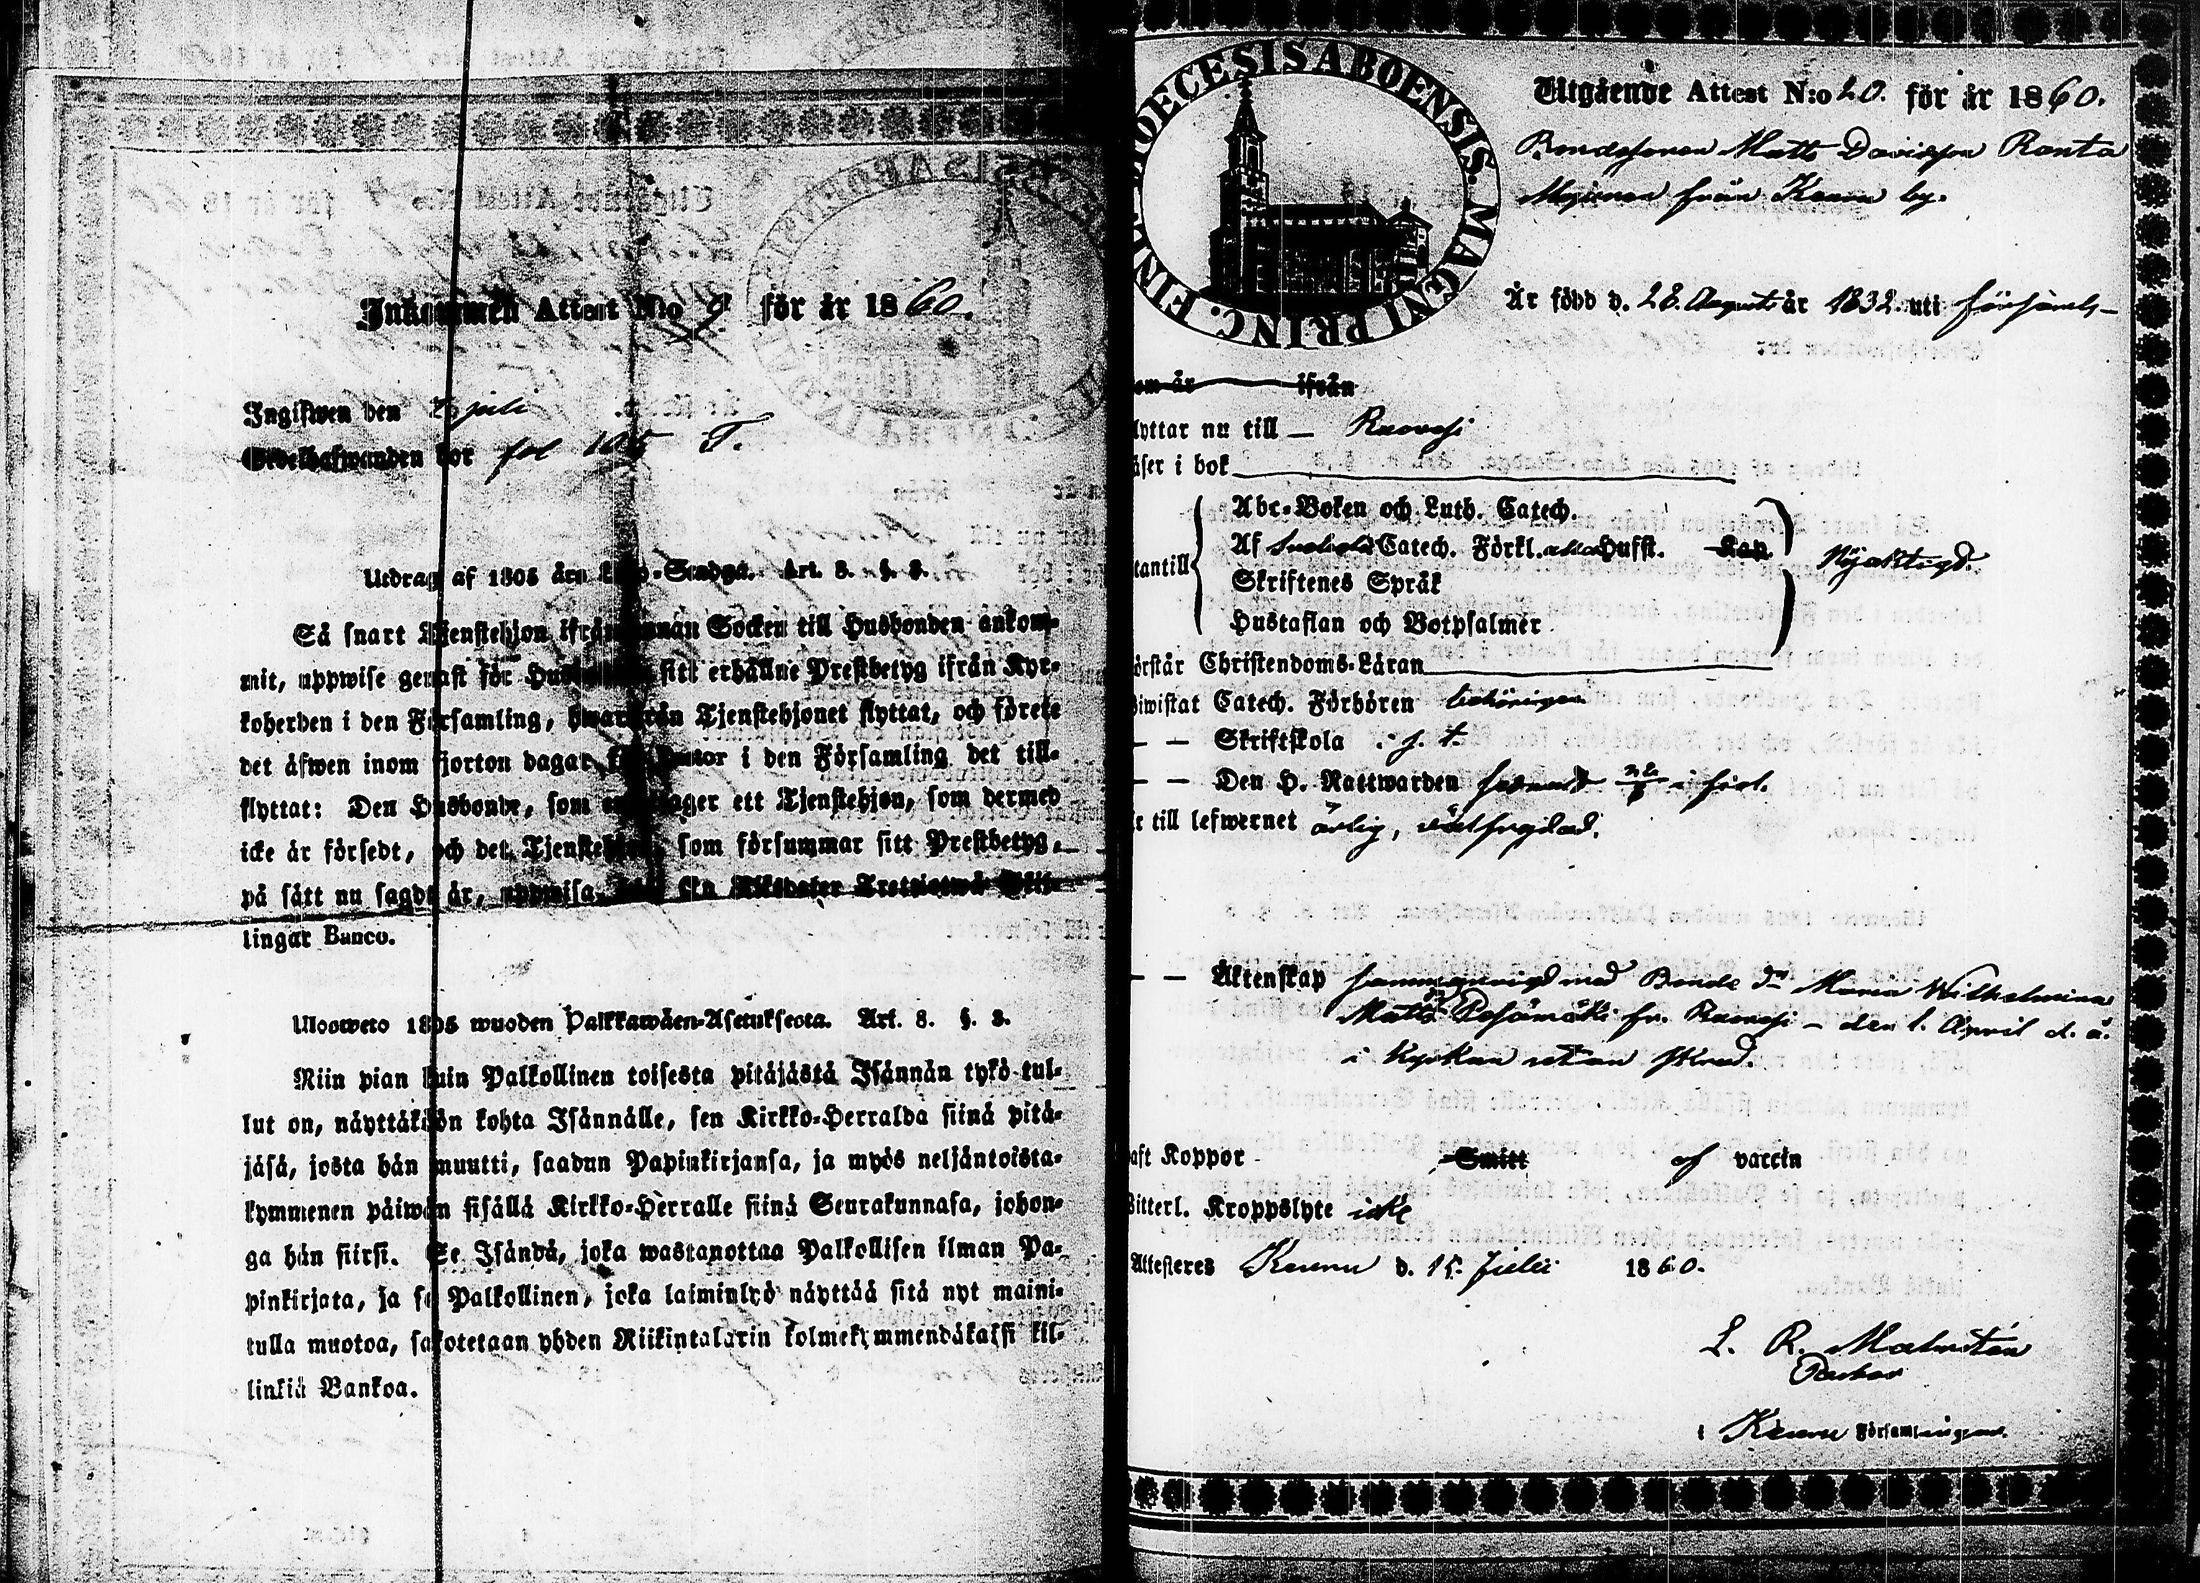 Inkommen Attest N:o 9 för år 1860.
Ingifwen den juli
fol 105 T.
Utdrag af 1805 års Lego-Stadga. Art. 8. §. 3.
Så snart Tjenstehjon ifrån annan Socken till Husbonden ankom-
mit, uppwise genast för sitt erhållne Prestbetyg ifrån Kyr-
koherden i den Församling, hwarifrån Tjenstehjonet flyttat, och förete
det äfwen inom fjorton dagar för Pastor i den Församling det till-
flyttat: Den Husbonde, som emottager ett Tjenstehjon, som dermed
icke är försedt, och det Tjenstehjon, som försummar sitt Prestbetyg,
på sätt nu sagdt är, uppwisa, Riksdaler Trettiotwå Skil-
lingar Banco.
Ulosweto 1805 wuoden Palkkawäen-Asetuksesta. Art. 8. §. 3.
Niin pian kuin Palkollinen toisesta pitäjästä Isännän tykö tul-
lut on, näyttäköön kohta Isännälle, sen Kirkko-Herralda siinä pitä-
jäsä, josta hän muutti, saadun Papinkirjansa, ja myös neljäntoista-
kymmenen päiwän sisällä Kirkko-Herralle siinä Seurakunnasa, johon-
ga hän siirsi. Se Isändä, joka wastanottaa Palkollisen ilman Pa-
pinkirjata, ja se Palkollinen, joka laiminlyö näyttää sitä nyt maini-
tulla muotoa, sakotetaan yhden Riikintalarin kolmekymmendäkaksi kil-
linkiä Bankoa.
DIOECESIS ABOENSIS. MAGNI PRINC. FINL.
Utgående Attest N:o 20. för år 1860.
Bondesonen Matts Davidsson Ranta
från Keuru by.
Är född d. 28. Augusti år 1832. uti församl-
om år ifrån
lyttar nu till — Ruovesi
äser i bok
Abc-Boken och Luth. Catech.
Af Svebelii Catech. Förkl. alla Hufst. Kap.
tantill Skriftenes Språk Nöjaktigt.
Hustaflan och Botpsalmer
örstår Christendoms-Läran
Biwistat Catech. Förhören behörigen
— — Skriftskola i s. t.
— — Den H. Nattwarden
r till lefwernet ärlig, välfrejdad.
— — Äktenskap sammanvigd med Bonde dr Maria Wilhelmina
Matts dr Pohjamäki fr. Ruovesi — den 1. April d. å.
i Kyrkan utan skrud.
aft Koppor Smitt af vaccin
Witterl. Kroppslyte icke
Attesteres Keuru d. 15. Julii 1860.
L. R. Malmstén
Pastor
i Keuru Församlingar.